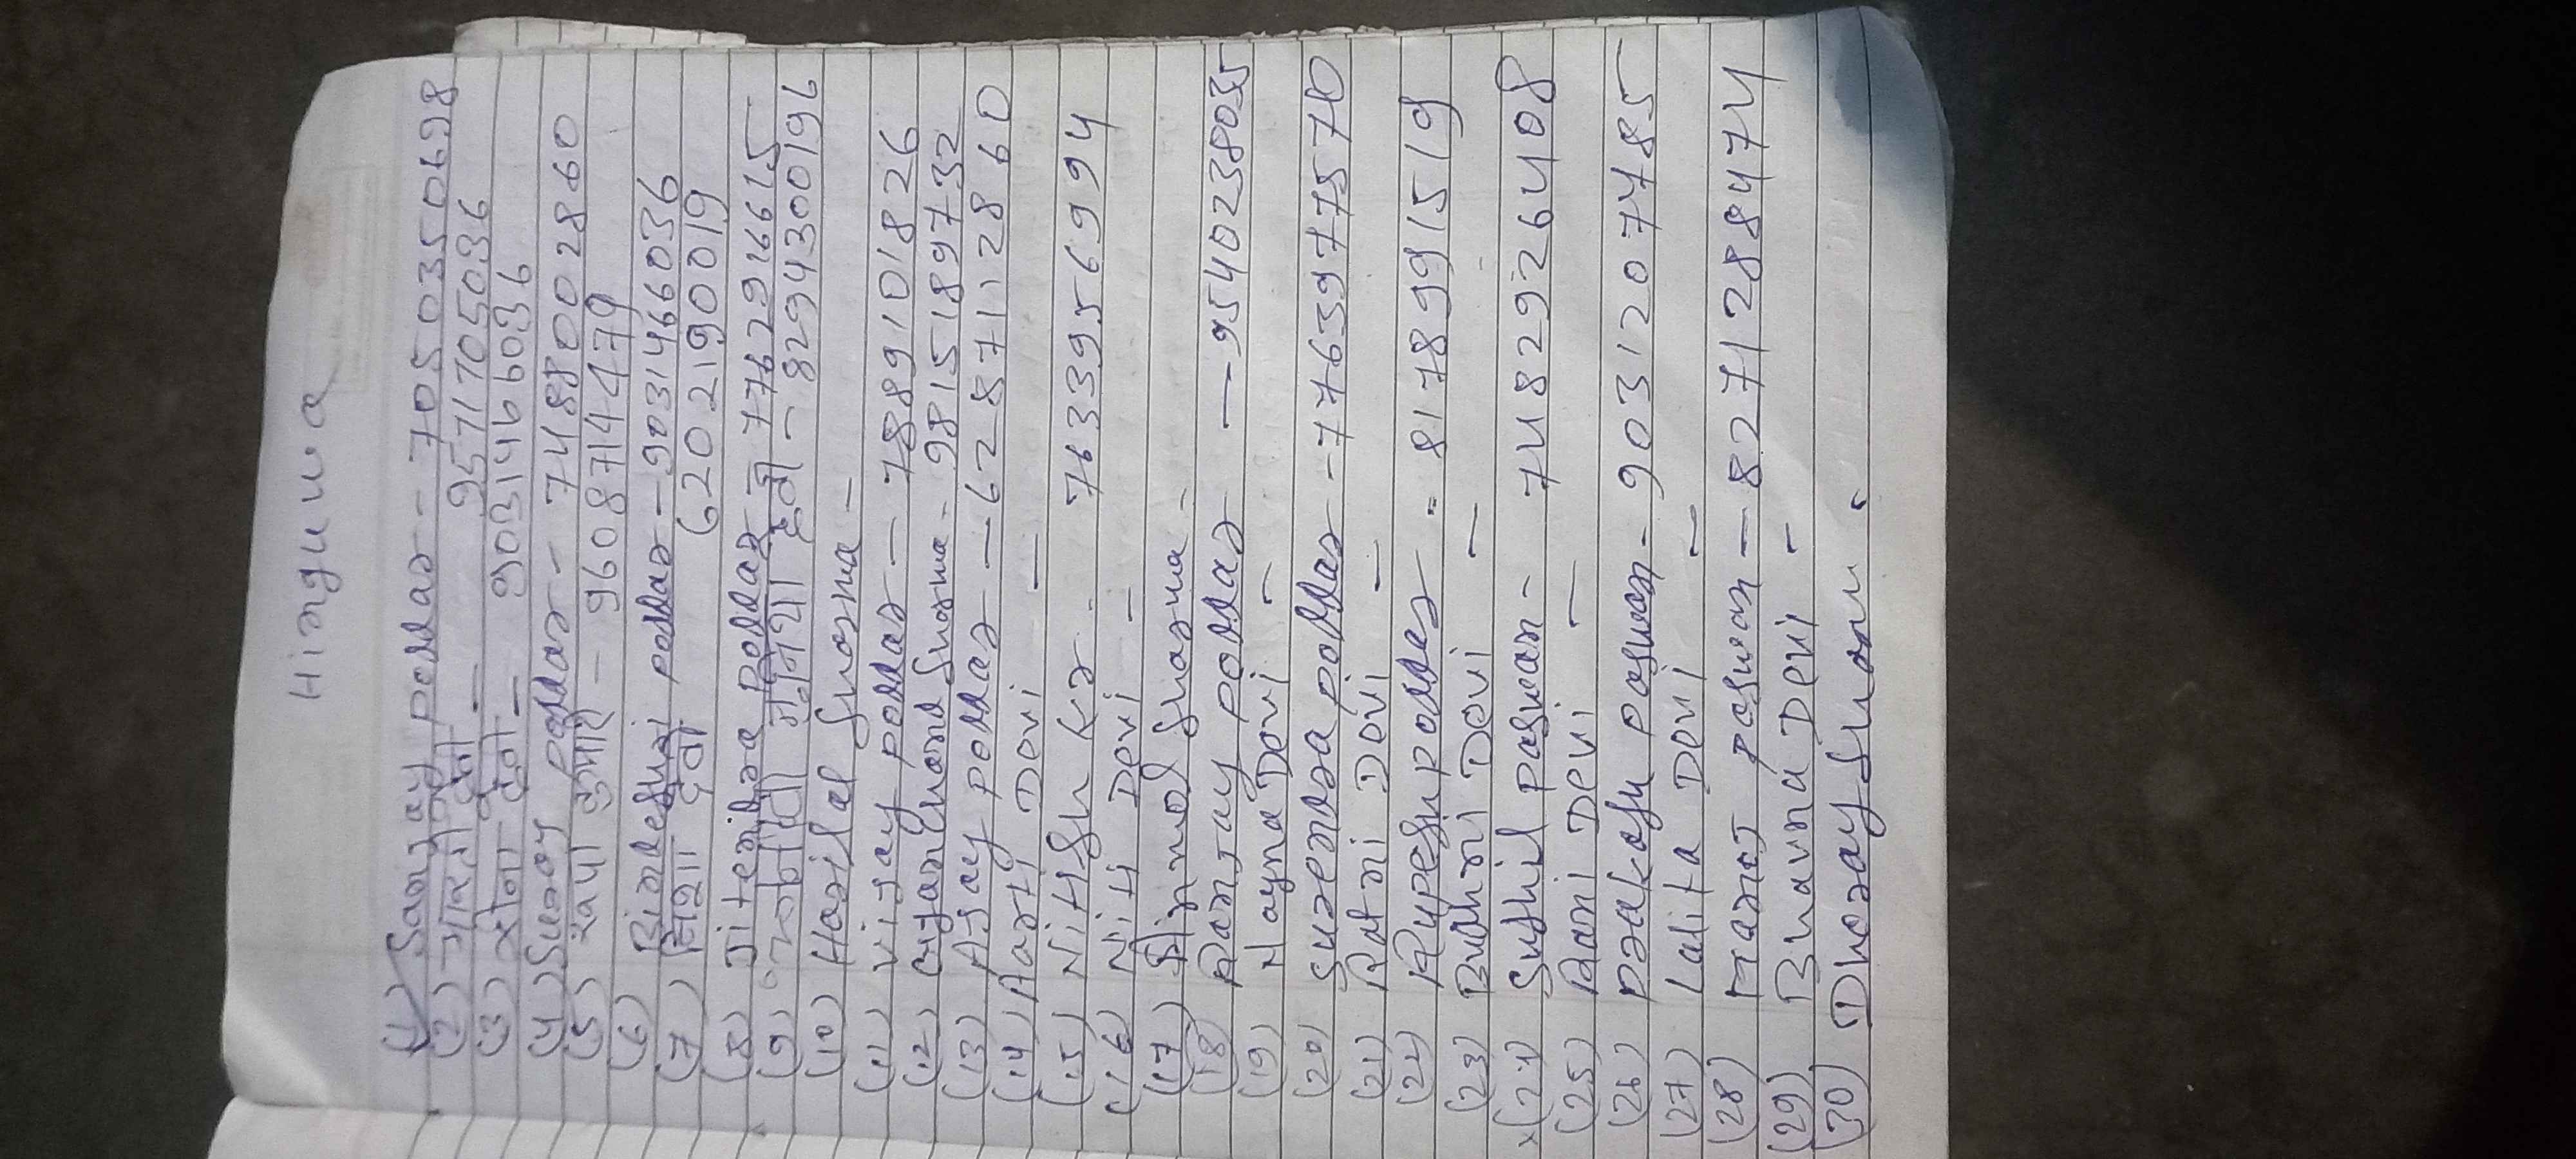 Hinguwa
(1) Sanjay poddar - 7050350698
(2) भारती देवी - 9571705036
(3) रीना देवी - 9031466036
(4) Suraj poddar - 7488002860
(5) चंपा कुमारी - 9608714479
(6) Bindeshri poddar - 9031466036
(7) निशा देवी 6202190019
(8) Jitendra poddar 7762916615
(9) देवी - 8294300196
(10) Harilal Sharma -
(11) Vijay poddar - 7889101826
(12) Gyanchand Sharma - 9815189732
(13) Ajay poddar - 6287112860
(14) Aarti Devi -
(15) Nitish Kr - 7633956994
(16) Niti Devi -
(17) Birmal Sharma -
(18) Ranjay poddar - 9540238035
(19) Nayna Devi -
(20) Surendra poddar - 7763977570
(21) Ratni Devi -
(22) Rupesh poddar - 8178991519
(23) Budhni Devi -
×(24) Sushil paswan - 7482926408
(25) Rani Devi -
(26) prakash paswan - 9031207485
(27) Lalita Devi -
(28) Manoj paswan - 8271288474
(29) Bhavna Devi -
(30) Dhoray